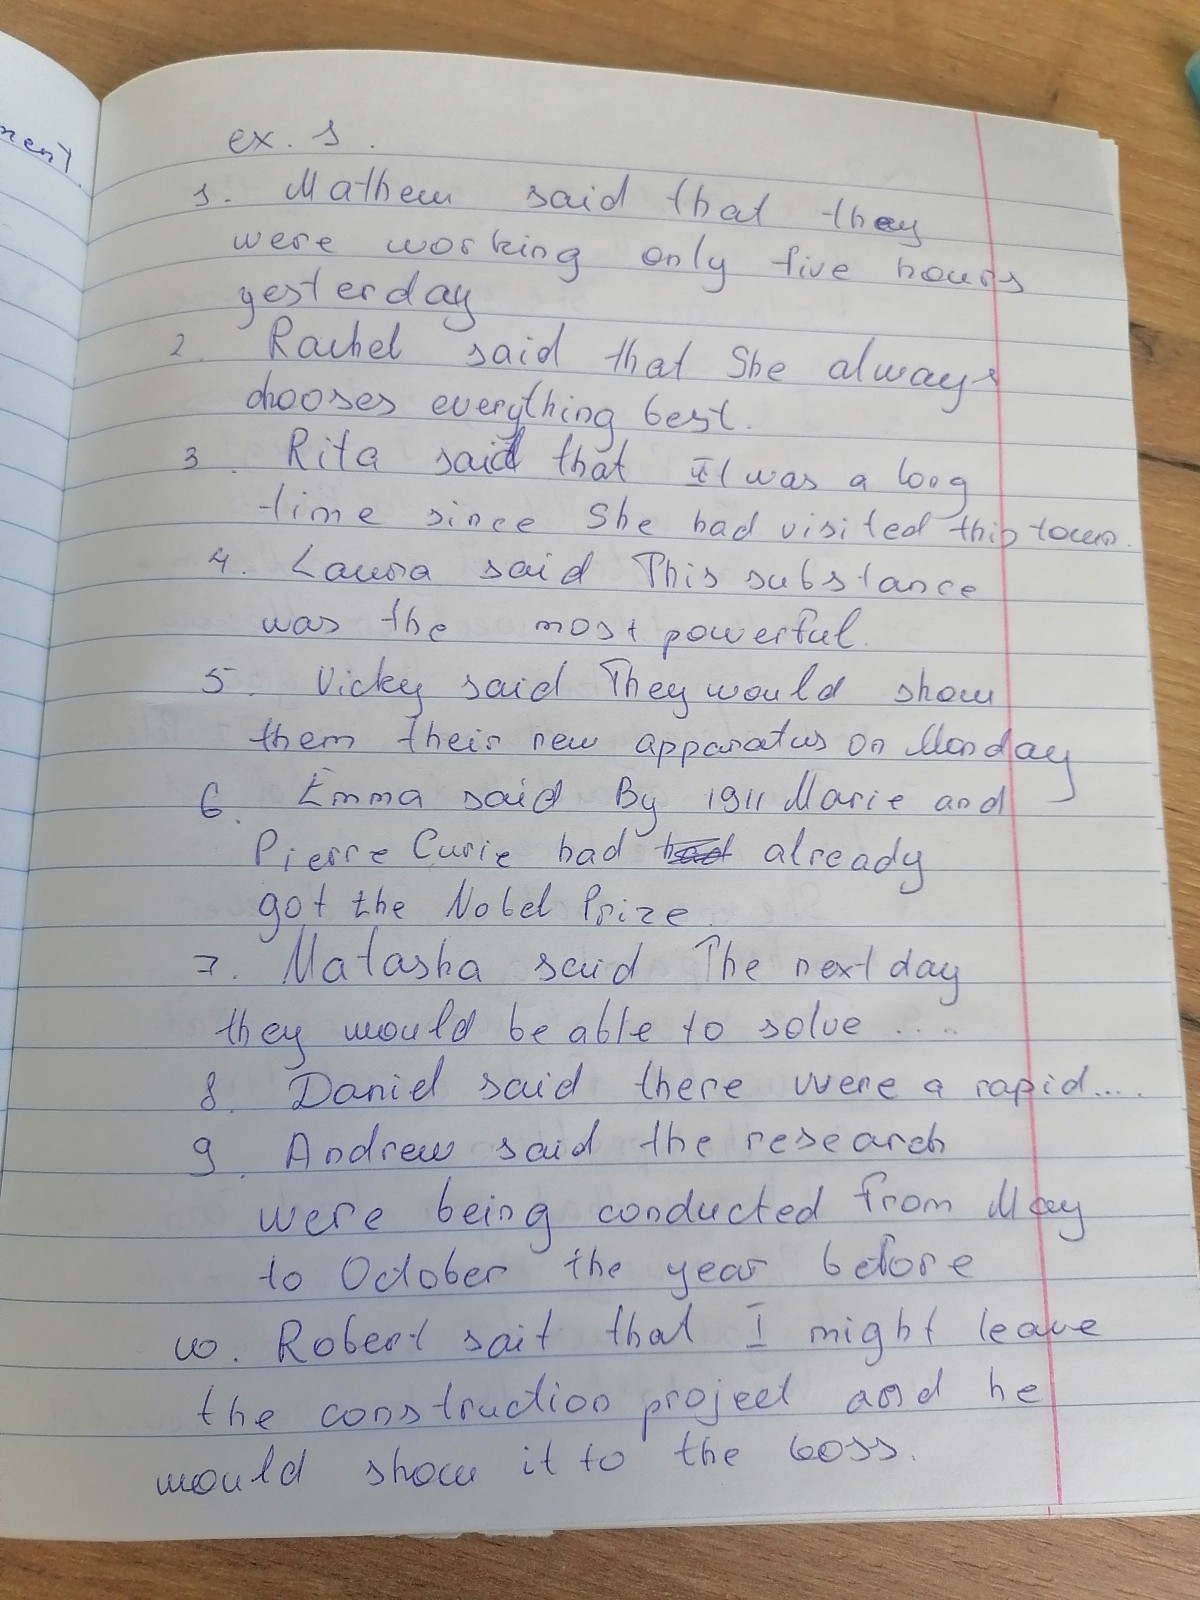 ment.
ex. 1.
1. Mathew said that they
were working only five hours
yesterday
2. Rachel said that She always
chooses everything best.
3. Rita said that It was a long
time since She had visited this town.
4. Laura said This substance
was the most powerful.
5. Vicky said They would show
them their new apparatus on Monday
6. Emma said By 1911 Marie and
Pierre Curie had had already
got the Nobel Prize.
7. Natasha said The next day
they would be able to solve ....
8. Daniel said there were a rapid....
9. Andrew said the research
were being conducted from May
to October the year before
10. Robert sait that I might leave
the construction project and he
would show it to the boss.